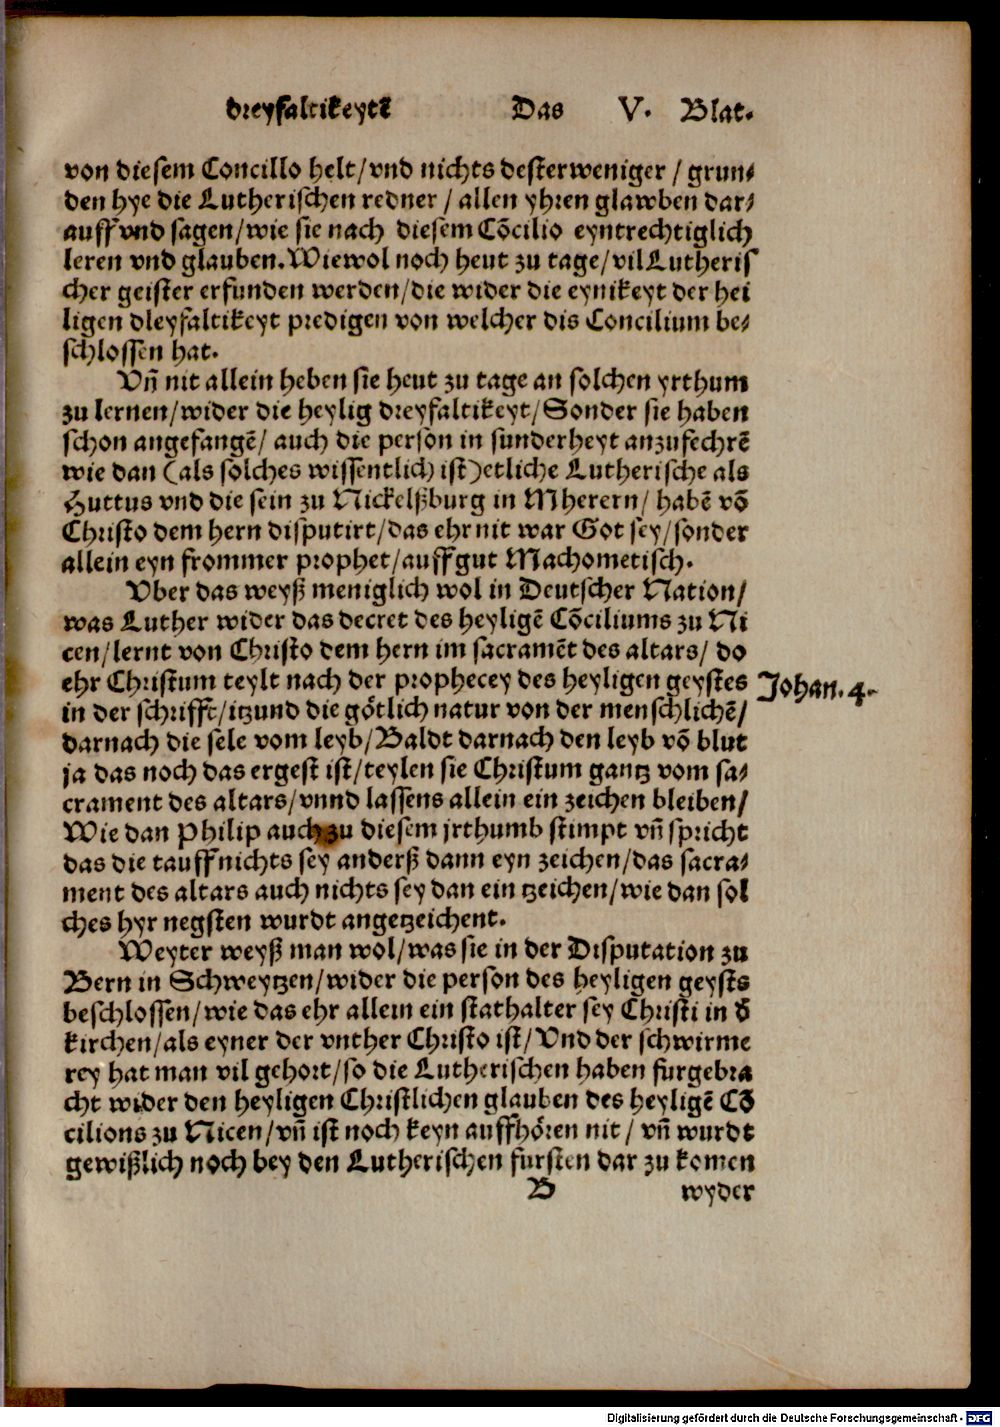 dreyfaltikeytt Das V. Blat.
von diesem Concillo helt/vnd nichts desterweniger / grun⸗
den hye die Lutherischen redner / allen yhren glawben dar⸗
auff vnd sagen/wie sie nach diesem Cõcilio eyntrechtiglich
leren vnd glauben.Wiewol noch heut zu tage/vil Lutheris
cher geister erfunden werden/die wider die eynikeyt der hei
ligen dleyfaltikeyt predigen von welcher dis Concilium be⸗
schlossen hat.
Vñ nit allein heben sie heut zu tage an solchen yrthum
zu lernen/wider die heylig dreyfaltikeyt/Sonder sie haben
schon angefangẽ/ auch die person in sunderheyt anzufechrẽ
wie dan (als solches wissentlich ist)etliche Lutherische als
Huttus vnd die sein zu Nickelßburg in Mherern/ habẽ võ
Christo dem hern disputirt/das ehr nit war Got sey/sonder
allein eyn frommer prophet/auff gut Machometisch.
Vber das weyß meniglich wol in Deutscher Nation/
was Luther wider das decret des heyligẽ Cõciliums zu Ni
cen/lernt von Christo dem hern im sacramẽt des altars/ do
ehr Christum teylt nach der prophecey des heyligen geystes
Johan. 4.
in der schrifft/itzund die götlich natur von der menschlichẽ/
darnach die sele vom leyb/Baldt darnach den leyb võ blut
ja das noch das ergest ist/teylen sie Christum gantz vom sa⸗
crament des altars/vnnd lassens allein ein zeichen bleiben/
Wie dan Philip auch zu diesem jrthumb stimpt vñ spricht
das die tauff nichts sey anderß dann eyn zeichen/das sacra⸗
ment des altars auch nichts sey dan ein tzeichen/wie dan sol
ches hyr negsten wurdt angetzeichent.
Weyter weyß man wol/was sie in der Disputation zu
Bern in Schweytzen/wider die person des heyligen geysts
beschlossen/wie das ehr allein ein stathalter sey Christi in d̕
kirchen/als eyner der vnther Christo ist/Vnd der schwirme
rey hat man vil gehort/so die Lutherischen haben furgebra
cht wider den heyligen Christlichen glauben des heyligẽ Cõ
cilions zu Nicen/vñ ist noch keyn auffhören nit/ vñ wurdt
gewißlich noch bey den Lutherischen fursten dar zu komen
B wyder
Digitalisierung gefördert durch die Deutsche Forschungsgemeinschaft - DFG